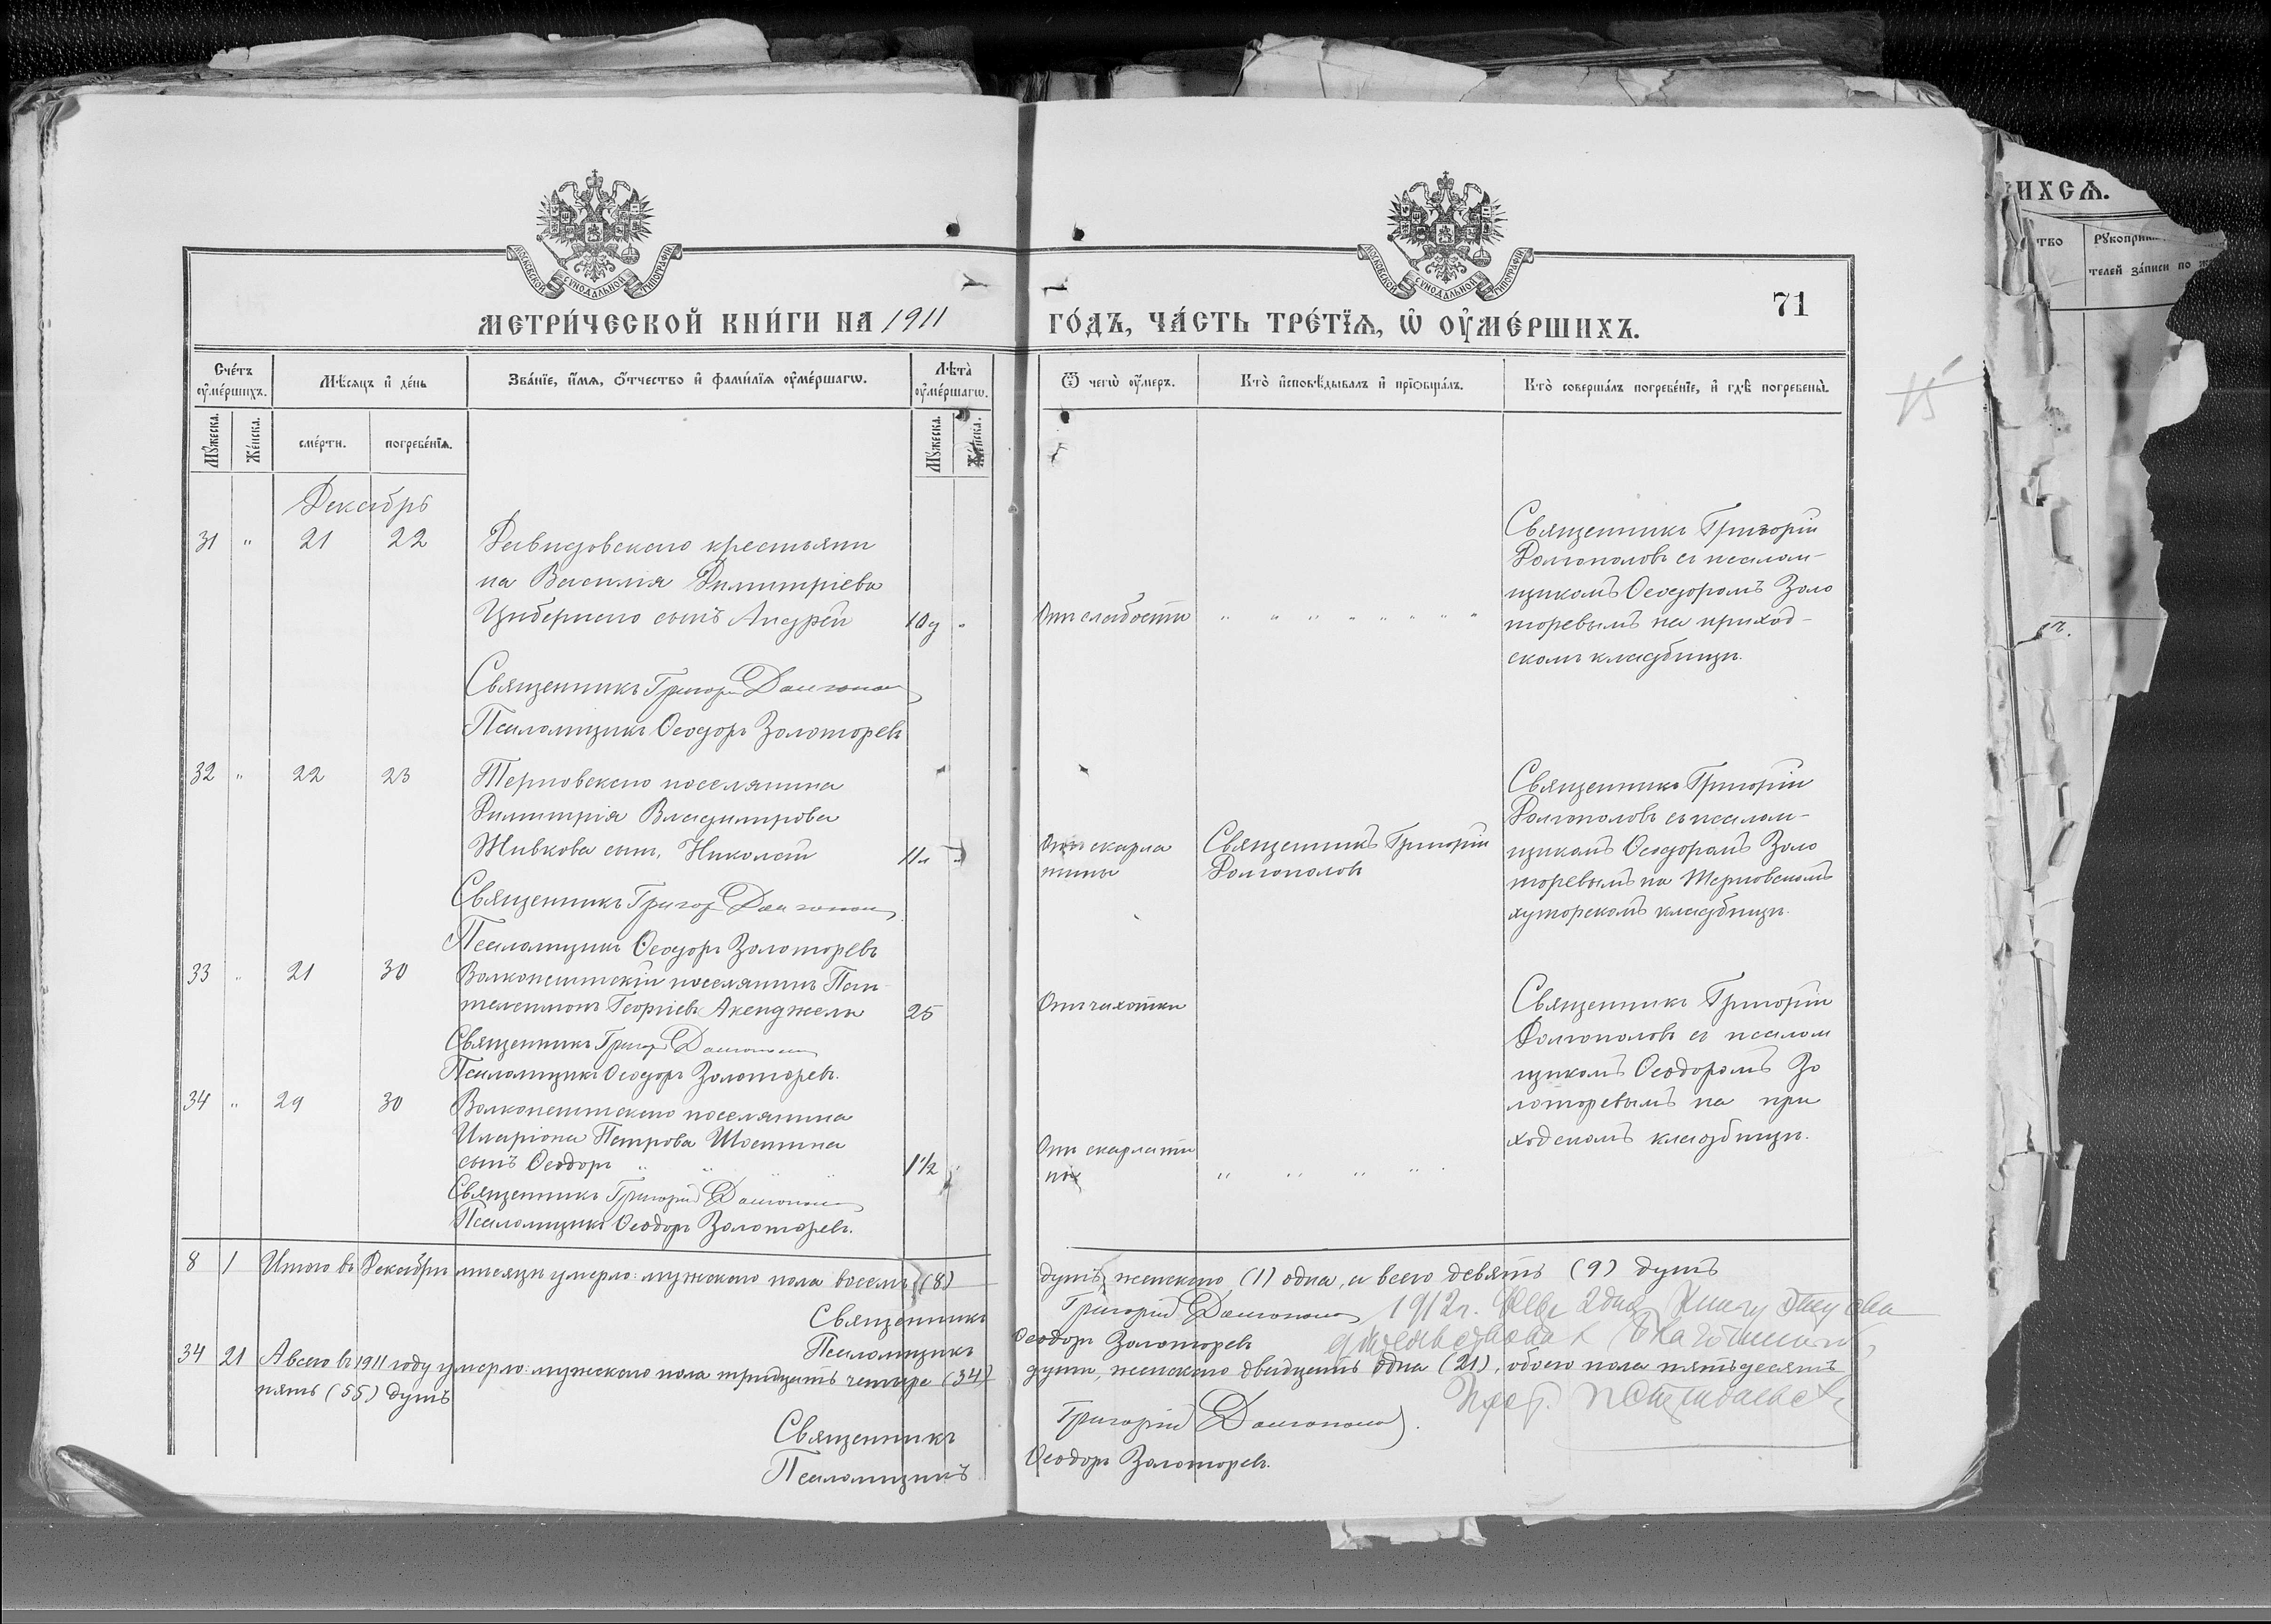 МОСКОВСКОЙ СѴНОДАЛЬНОЙ ТИПОГРАФІИ
МОСКОВСКОЙ СѴНОДАЛЬНОЙ ТИПОГРАФІИ
МЕТРИ́ЧЕСКОЙ КНИ́ГИ НА 1911 ГО́ДЪ, ЧА́СТЬ ТРЕ́ТЇѦ, Ѡ҆ ОУ҆МЕ́РШИХЪ.
71
15
Сче́тъ оу҆ме́ршихъ.
Мꙋ́жеска.
Же́нска.
Мѣ́сяцъ и҆ де́нь
сме́рти.
погребе́нїѧ.
Зва́нїе, и҆́мѧ, ѻ҆́тчество и҆ фами́лїѧ оу҆ме́ршагѡ.
Лѣ́та оу҆ме́ршагѡ.
Мꙋ́жеска.
Же́нска.
Ѿ чегѡ̀ оу҆́меръ.
Кто̀ и҆сповѣ́дывалъ и҆ прїѡбща́лъ.
Кто̀ соверша́лъ погребе́нїе, и҆ гдѣ̀ погребены̀.
Декабрь
31 " 21 22 Давидовскаго крестьяни
на Василія Димитріева
Циберного сынъ Андрей 10 д "
Отъ слабости " " " " " " " "
Священникъ Григорій
Долгополовъ съ псалом-
щикомъ Ѳеодоромъ Золо
торевымъ на приход-
скомъ кладбищѣ.
Священникъ Григорій Долгополов
Псаломщикъ Ѳеодоръ Золоторевъ
32 " 22 23 Терновскаго поселянина
Димитрія Владимирова
Живкова сынъ, Николай 11 л "
Отъ скарла
тины
Священникъ Григорій
Долгополовъ
Священникъ Григорій
Долгополовъ съ псалом-
щикомъ Ѳеодоромъ Золо
торевымъ на Терновскомъ
хуторскомъ кладбищѣ.
Священникъ Григор Долгополов
Псаломщикъ Ѳеодоръ Золоторевъ
33 " 21 30 Волконештскій поселянинъ Пан
телеимонъ Георгіевъ Акенджели 25
Отъ чахотки
Священникъ Григорій
Долгополовъ съ псалом
щикомъ Ѳеодоромъ Зо
лоторевымъ на при
ходскомъ кладбищѣ.
Священникъ Григор Долгополов
Псаломщикъ Ѳеодоръ Золоторевъ.
34 " 29 30 Волконештскаго поселянина
Иларіона Петрова
сынъ Ѳеодоръ " " " " 1½ "
Отъ скарлати
ны
" " " " "
Священникъ Григорій Долгополов
Псаломщикъ Ѳеодоръ Золоторевъ.
8 1 Итого въ Декабрѣ мѣсяцѣ умерло: мужескаго пола восемь (8) душъ, женскаго (1) одна, а всего девять (9) душъ
Священникъ Григорій Долгополов
1912 г. 2 дня
Псаломщикъ Ѳеодоръ Золоторевъ
34 21 А всего въ 1911 году умерло: мужескаго пола тридцать четыре (34) души, женскаго двадцать одна (21), обоего пола пятьдесятъ
пять (55) душъ
Священникъ Григорій Долгополов.
Псаломщикъ Ѳеодоръ Золоторевъ.
ИХСѦ.
тво
телей за́писи по